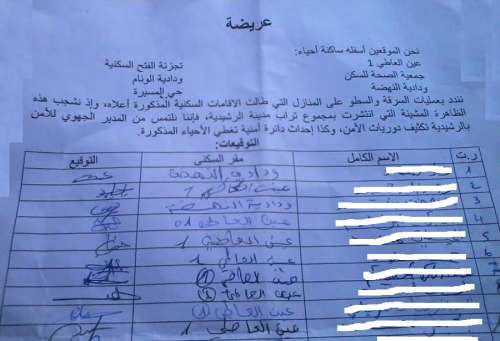 عريضة
نحن الموقعين أسفله ساكنة أحياء:
عين العاطي 1
تجزئة الفتح السكنية
جمعية الصحة للسكن
ودادية الوئام
ودادية النهضة
حي المسيرة
نندد بعمليات السرقة والسطو على المنازل التي طالت الاقامات السكنية المذكورة أعلاه، وإذ نشجب هذه
الظاهرة المشينة التي انتشرت بمجموع تراب مدينة الرشيدية، فإننا نلتمس من المدير الجهوي للأمن
بالرشيدية تكثيف دوريات الأمن، وكذا إحداث دائرة أمنية تغطي الأحياء المذكورة.
التوقيعات:
ر.ت الاسم الكامل مقر السكنى التوقيع
1 ودادية النهضة
2 عين العاطي 1
3 ودادية النهضة
4 عين العاطي 01
5 عين العاطي 1
6 عين العاطي 1
7 عين العاطي (1)
عين العاطي (1)
عين العاطي (1)
عين العاطي 1